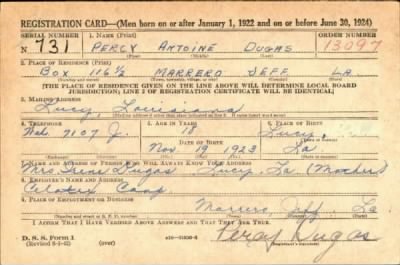 REGISTRATION CARD—(Men born on or after January 1, 1922 and on or before June 30, 1924)
SERIAL NUMBER 1. NAME (Print) ORDER NUMBER
N 731 PERCY ANTOINE DUGAS 13097
(First) (Middle) (Last)
2. PLACE OF RESIDENCE (Print)
BOX 116½ MARRERO JEFF. LA.
(Number and street) (Town, township, village, or city) (County) (State)
[THE PLACE OF RESIDENCE GIVEN ON THE LINE ABOVE WILL DETERMINE LOCAL BOARD
JURISDICTION; LINE 2 OF REGISTRATION CERTIFICATE WILL BE IDENTICAL]
3. MAILING ADDRESS
Lucy, Louisiana
4. TELEPHONE 5. AGE IN YEARS 6. PLACE OF BIRTH
18 Lucy,
7107 J. DATE OF BIRTH
Nov. 19 1923 La
7. NAME AND ADDRESS OF PERSON WHO WILL ALWAYS KNOW YOUR ADDRESS
Mrs. Irene Dugas Lucy, La (Mother)
8. EMPLOYER'S NAME AND ADDRESS
Celotex Corp
9. PLACE OF EMPLOYMENT OR BUSINESS
Marrero, Jeff. La
(Number and street or R. F. D. number) (Town) (County) (State)
I AFFIRM THAT I HAVE VERIFIED ABOVE ANSWERS AND THAT THEY ARE TRUE.
D. S. S. Form 1
Percy Dugas